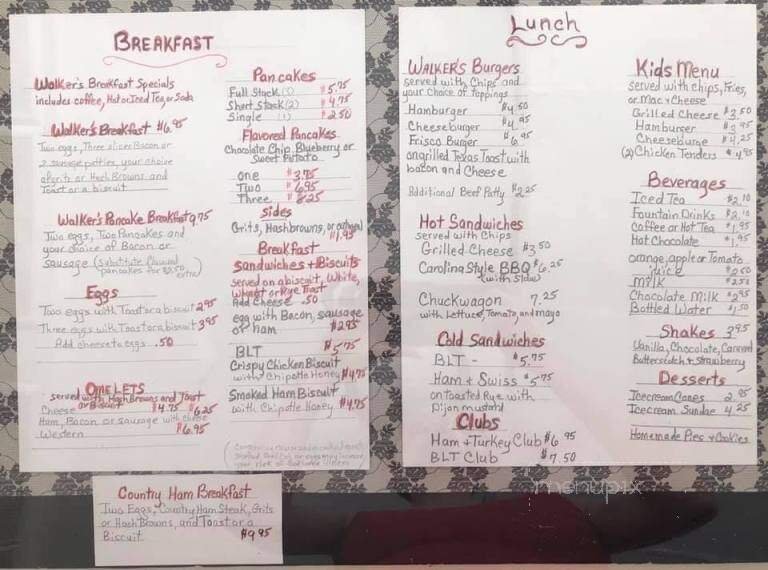 BREAKFAST
Walker's Breakfast Specials
includes coffee, Hot or Iced Tea, or Soda
Walker's Breakfast $6.95
Two eggs, Three slices Bacon or
2 sausage patties, your choice
of grits or Hash Browns and
Toast or a biscuit
Walker's Pancake Breakfast 9.75
Two eggs, Two Pancakes and
your choice of Bacon or
Sausage (substitute flavored
pancakes for $2.50 extra)
Eggs
Two eggs with Toast or a biscuit 2.95
Three eggs with Toast or a biscuit 3.95
Add cheese to eggs .50
OMELETS
served with Hash Browns and Toast
or Biscuit
Cheese $4.75 $6.25
Ham, Bacon or sausage with cheese
Western $6.95
Pancakes
Full Stack $5.75
Short Stack (2) $4.75
Single (1) $2.50
Flavored Pancakes
Chocolate Chip, Blueberry or
Sweet Potato
One $3.75
Two $6.95
Three $8.25
Sides
Grits, Hashbrowns, or oatmeal
$1.95
Breakfast
Sandwiches + Biscuits
served on a biscuit, White,
Wheat or Rye Toast
Add Cheese .50
egg with Bacon, sausage
or ham $2.95
BLT $5.75
Crispy Chicken Biscuit
with Chipotle Honey $4.75
Smoked Ham Biscuit
with Chipotle Honey $4.75
Country Ham Breakfast
Two Eggs, Country Ham Steak, Grits
or Hash Browns, and Toast or a
Biscuit $9.95
Lunch
WALKER'S Burgers
served with Chips and
your choice of toppings
Hamburger $4.50
Cheeseburger $4.95
Frisco Burger 6.95
on grilled Texas Toast with
bacon and Cheese
Additional Beef Patty $2.25
Hot Sandwiches
served with Chips
Grilled Cheese $3.50
Carolina Style BBQ $6.25
(with Slaw)
Chuckwagon 7.25
with Lettuce, Tomato, and mayo
Cold Sandwiches
BLT - $5.75
Ham + Swiss $5.75
on Toasted Rye with
Dijon mustard
Clubs
Ham + Turkey Club $6.95
BLT Club $7.50
Kids Menu
served with chips, Fries,
or Mac + Cheese
Grilled Cheese $3.50
Hamburger $3.95
Cheeseburger $4.25
(2) Chicken Tenders $4.95
Beverages
Iced Tea $2.10
Fountain Drinks $2.10
Coffee or Hot Tea $1.95
Hot Chocolate $1.95
orange, apple or Tomato
juice $2.50
Milk $2.50
Chocolate Milk $2.95
Bottled Water $1.50
Shakes 3.95
Vanilla, Chocolate, Caramel
Butterscotch + Strawberry
Desserts
Icecream Cones 2.95
Icecream Sundae 4.25
Homemade Pies + Cookies
menupix